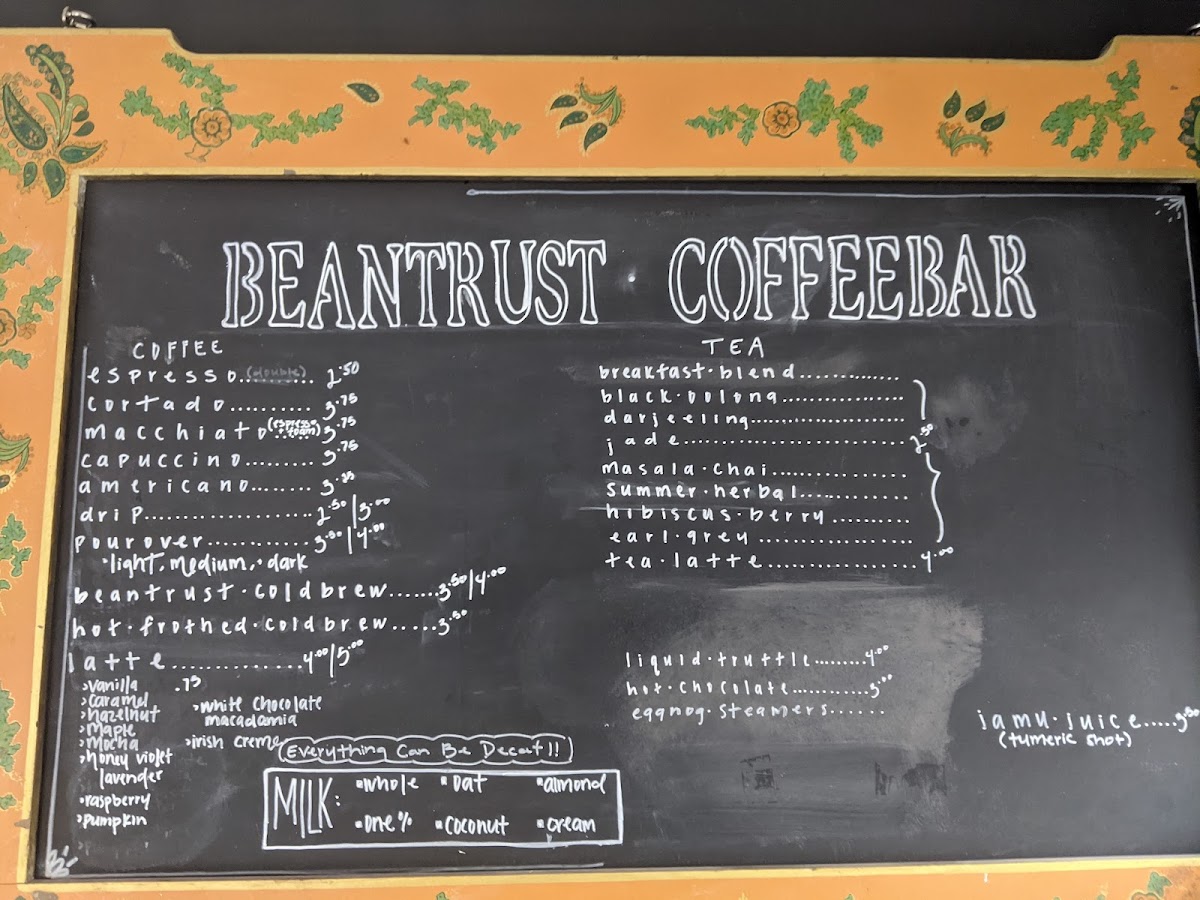 BEANTRUST · COFFEEBAR
COFFEE
espresso..(double)... 2.50
cortado.......... 3.75
macchiato (espresso foam) 3.75
capuccino......... 3.75
americano........ 3.25
drip.................... 2.50/3.00
pourover............ 3.50/4.00
·light, medium, · dark
beantrust·coldbrew.......3.50/4.00
hot·frothed·coldbrew.....3.50
latte...............4.00/5.00
>vanilla .75
>caramel
>hazelnut
>maple
>mocha
>honey violet
lavender
>raspberry
>pumpkin
>white chocolate
macadamia
>irish creme
Everything Can Be Decaf!!
MILK:
▪whole ▪oat ▪almond
▪one% ▪coconut ▪cream
TEA
breakfast·blend..............
black·oolong.................
darjeeling.....................
jade.............................. 2.50
masala·chai..................
summer·herbal..............
hibiscus·berry..........
earl·grey..................
tea·latte....................4.00
liquid·truffle.........4.00
hot·chocolate...........3.00
eggnog·steamers......
jamu·juice.....3.50
(tumeric shot)